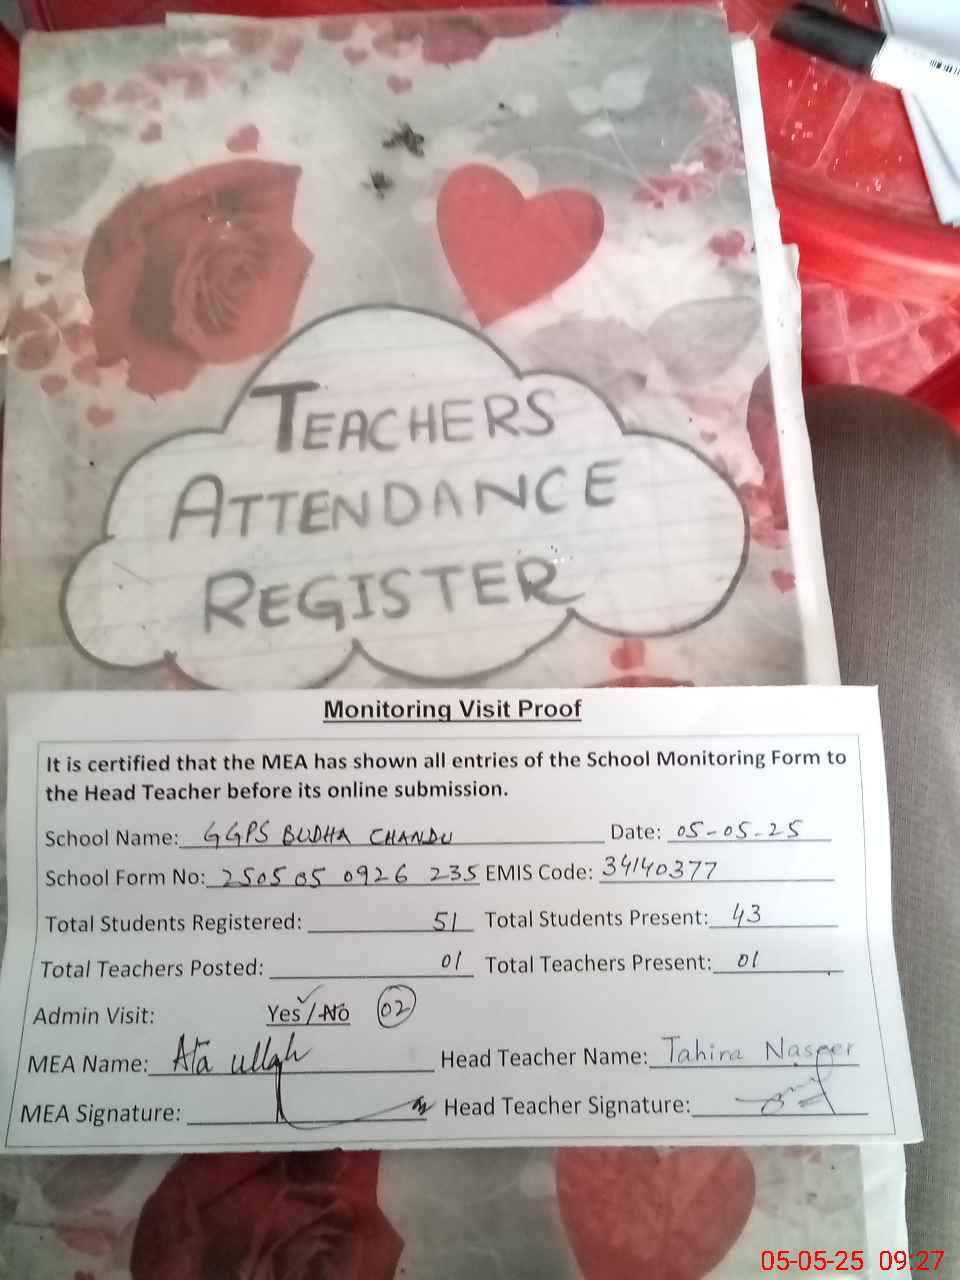 TEACHERS
ATTENDANCE
REGISTER
Monitoring Visit Proof
It is certified that the MEA has shown all entries of the School Monitoring Form to
the Head Teacher before its online submission.
School Name: GGPS BUDHA CHANDU Date: 05-05-25
School Form No: 250505 0926 235 EMIS Code: 34140377
Total Students Registered: 51 Total Students Present: 43
Total Teachers Posted: 01 Total Teachers Present: 01
Admin Visit: Yes/No 02
MEA Name: Ata ullah Head Teacher Name: Tahira Naseer
MEA Signature: Head Teacher Signature:
05-05-25 09:27